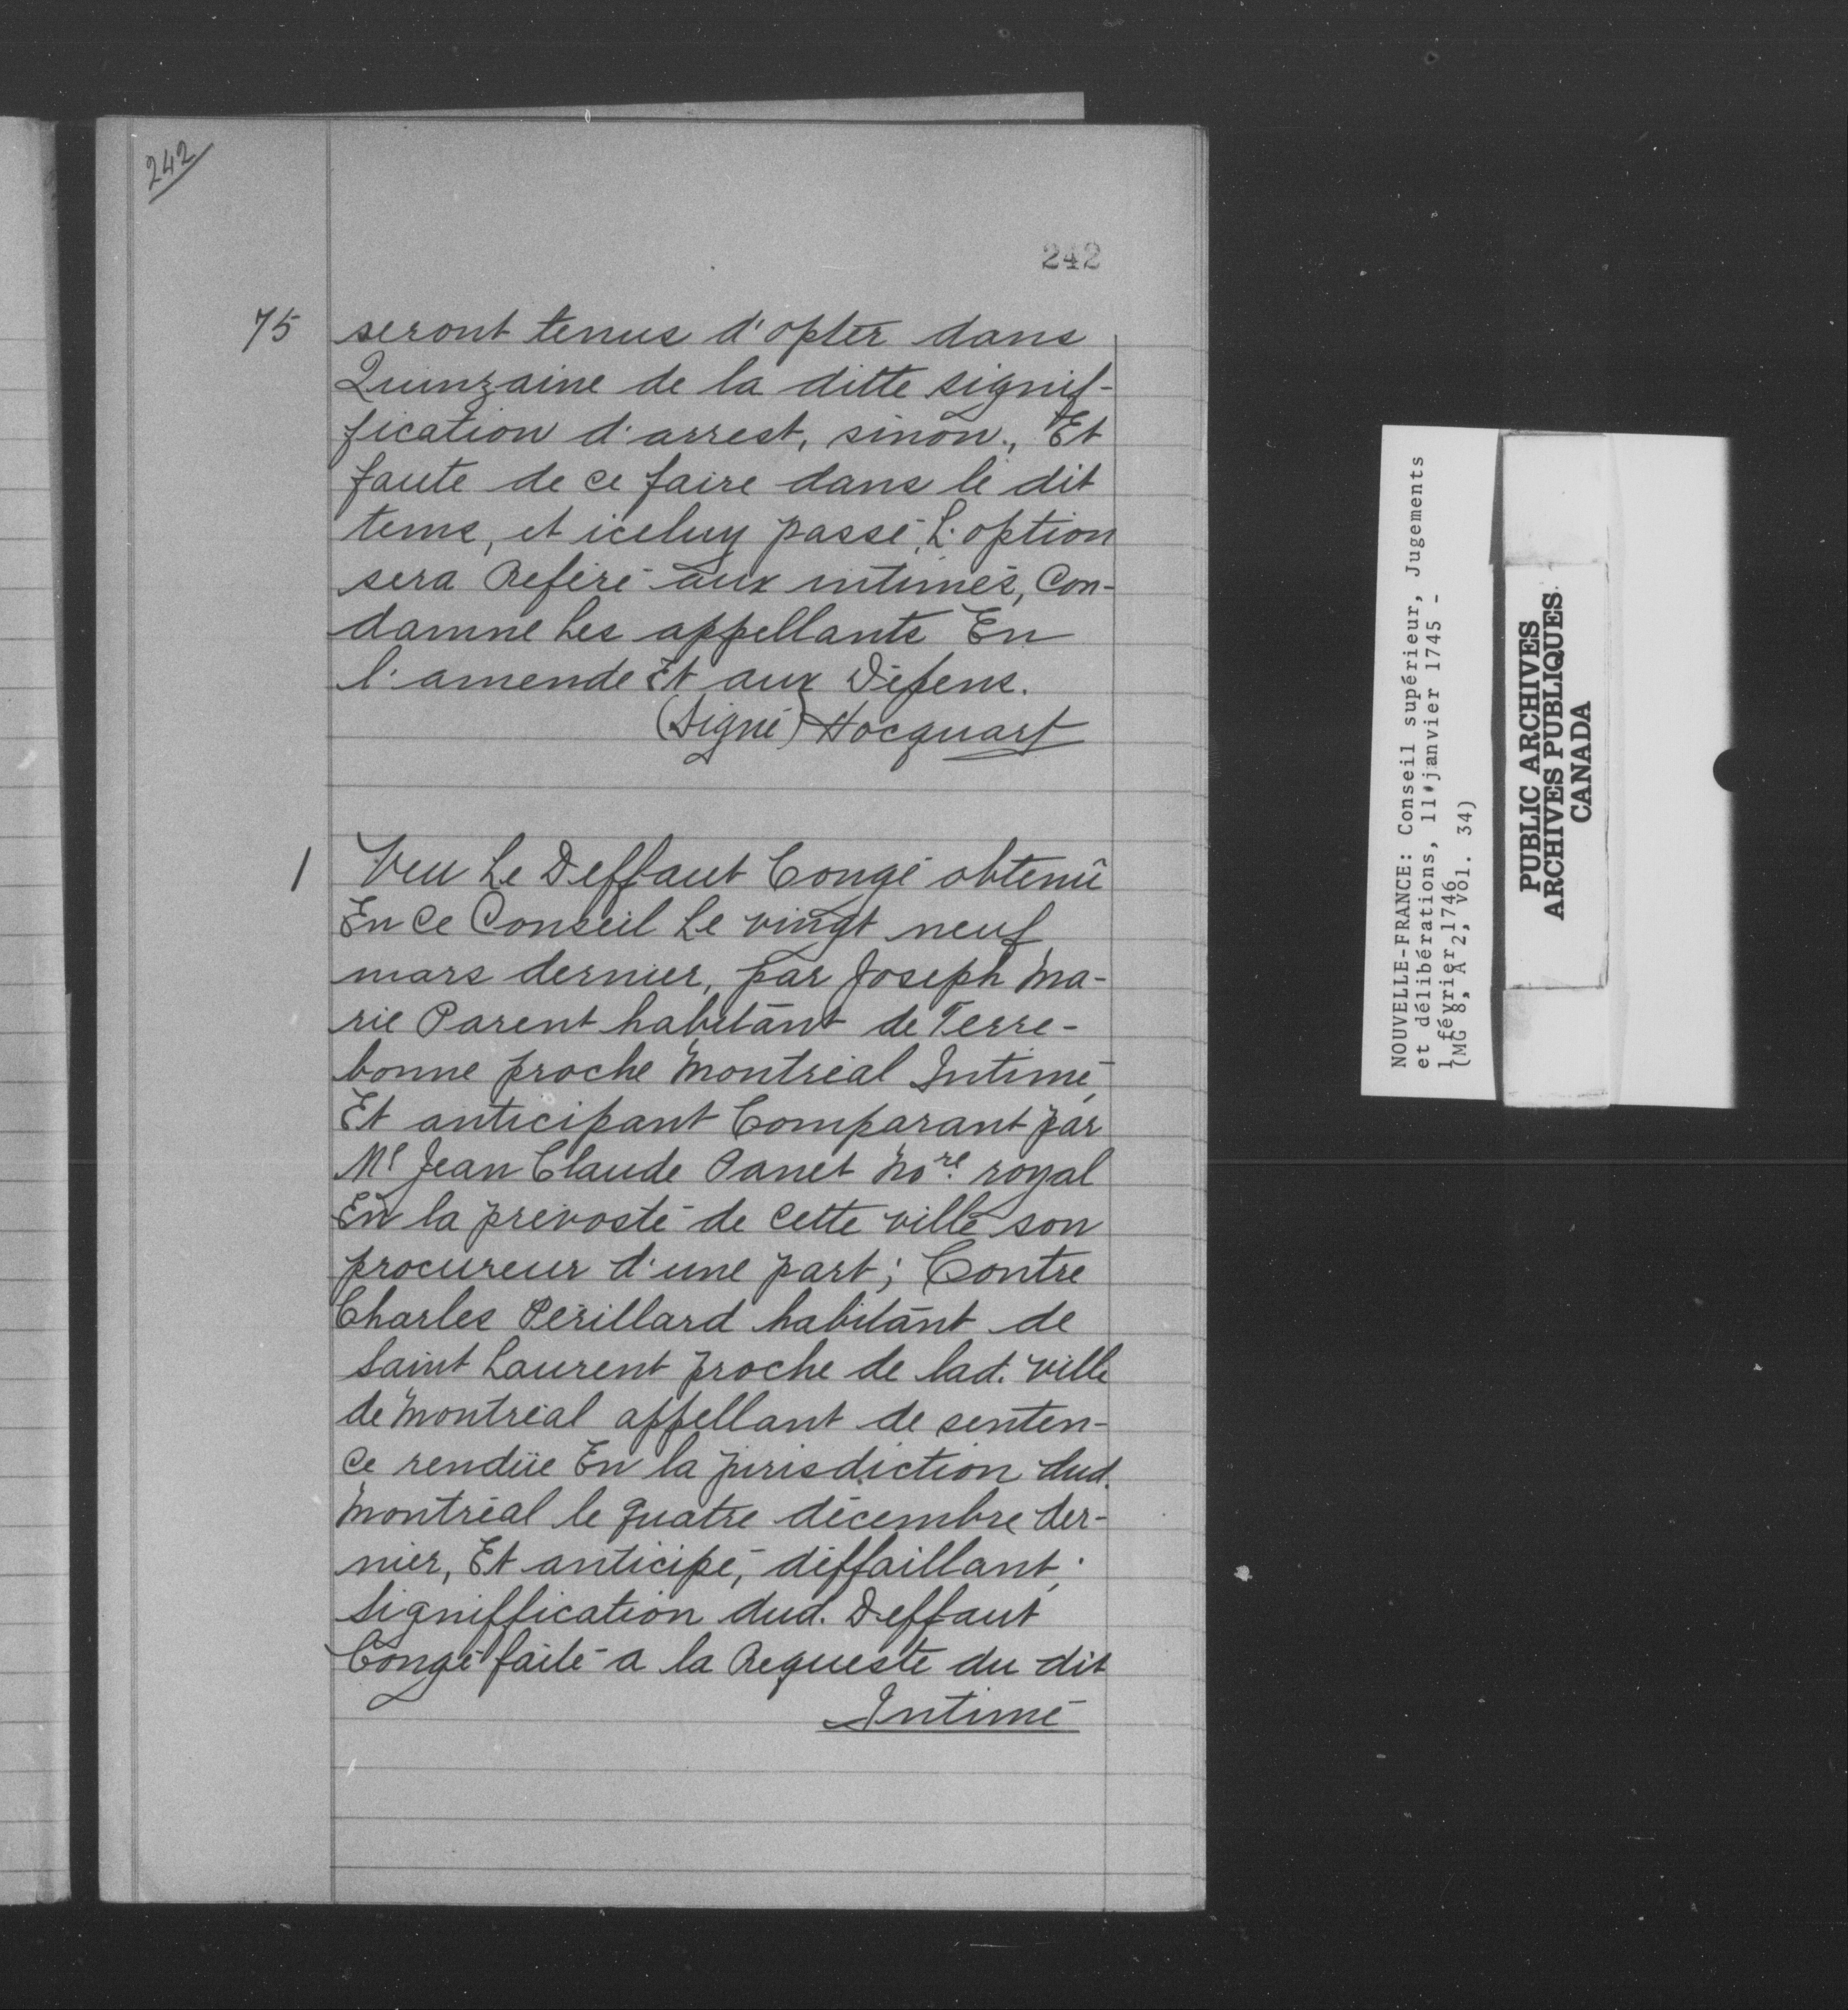 242
242
75
seront tenus d'opter dans
Quinzaine de la ditte signif-
fication d'arrest, sinon, Et
faute de ce faire dans le dit
tems, et iceluy passé, L'option
sera Reféré aux intimés, Con-
damne Les appellants En
l'amende Et aux Dépens.
(Signé) Hocquart
1
Veu Le Deffaut Congé obtenû
En ce Conseil Le vingt neuf
mars dernier, par Joseph Ma-
rie Parent habitant de Terre-
bonne proche Montréal Intimé,
Et anticipant Comparant par
Me Jean Claude Panet Nore. royal
En la prévosté de cette ville son
procureur d'une part; Contre
Charles Périllard habitant de
Saint Laurent proche de lad. ville
de Montréal appellant de senten-
ce rendüe En la jurisdiction dud.
Montréal le quatre décembre der-
nier, Et anticipé, déffaillant;
Signiffication dud. Deffaut
Congé faite a la Requeste du dit
Intimé
NOUVELLE-FRANCE: Conseil supérieur, Jugements
et délibérations, 11 janvier 1745 -
1 février 1746
(MG 8, A 2, vol. 34)
PUBLIC ARCHIVES
ARCHIVES PUBLIQUES
CANADA